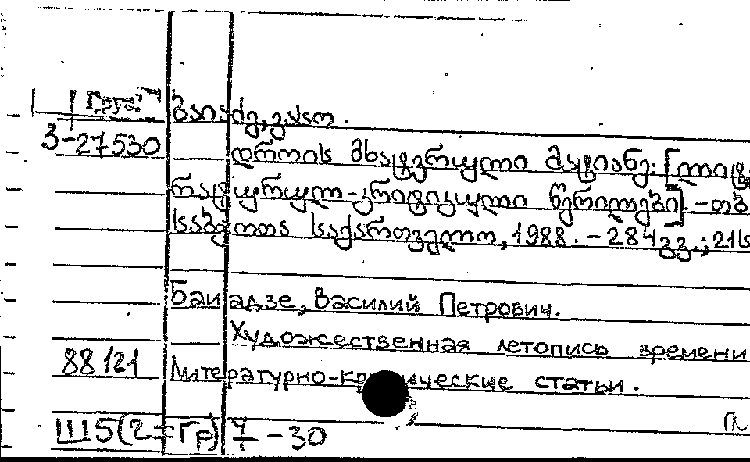 Груз
ბაიაძე, ვასო.
З-27530
დროის მხატვრული მატიანე: [ლიტე
რატურულ-კრიტიკული წერილები]. -თბ
საბჭოთა საქართველო, 1988. - 284 გვ.; 21ს
Баиадзе, Василий Петрович.
Художественная летопись времени
88121
Литературно-критические статьи.
Ш5(2=Гр)7 -30